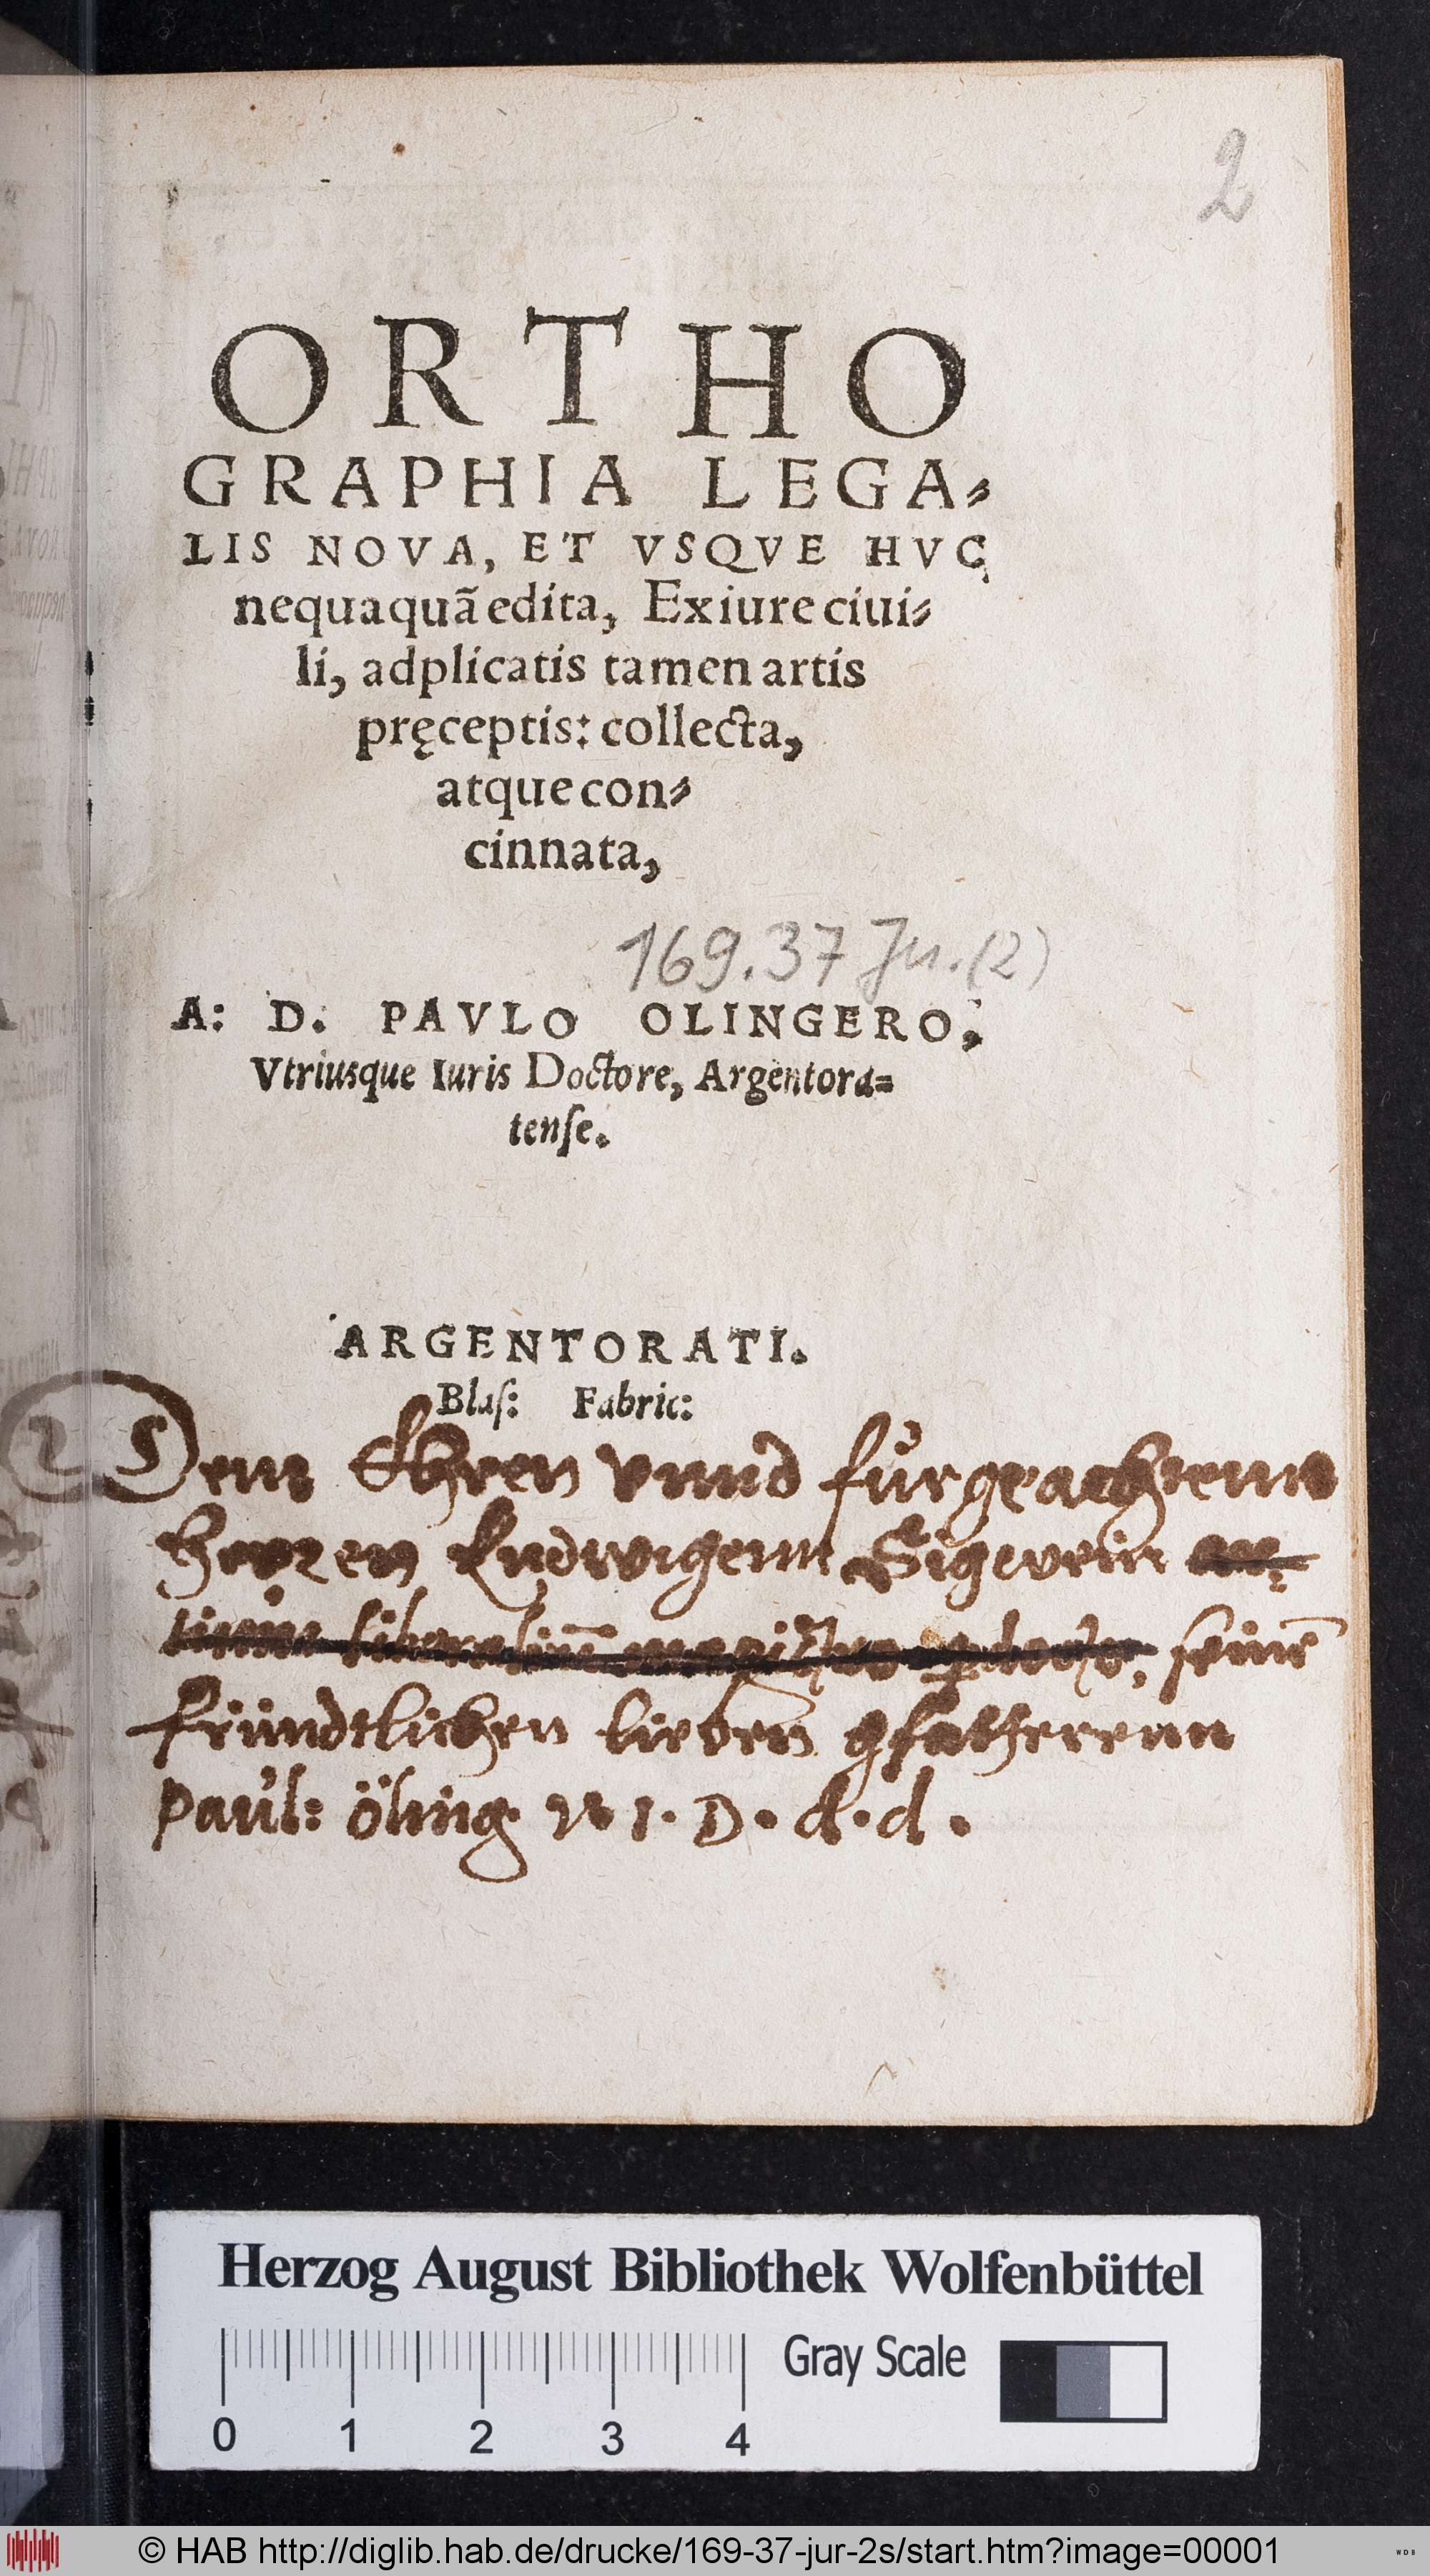 2
ORTHO
GRAPHIA LEGA⸗
LIS NOVA, ET VSQVE HVC
nequaquã edita, Ex iure ciui⸗
li, adplicatis tamen artis
pręceptis: collecta,
atque con⸗
cinnata,
169.37 Jur. (2)
A: D. PAVLO OLINGERO,
Vtriusque Iuris Doctore, Argentora⸗
tenſe.
ARGENTORATI.
Blaſ: Fabric:
Dem Ehren vnnd fürgeachtenn
Herren Ludwigenn
liberaliũ seinẽ
fründtlichen lieben gfatherenn
Paul: öling. V I. D. d. d.
Herzog August Bibliothek Wolfenbüttel
Gray Scale
0 1 2 3 4
© HAB http://diglib.hab.de/drucke/169-37-jur-2s/start.htm?image=00001